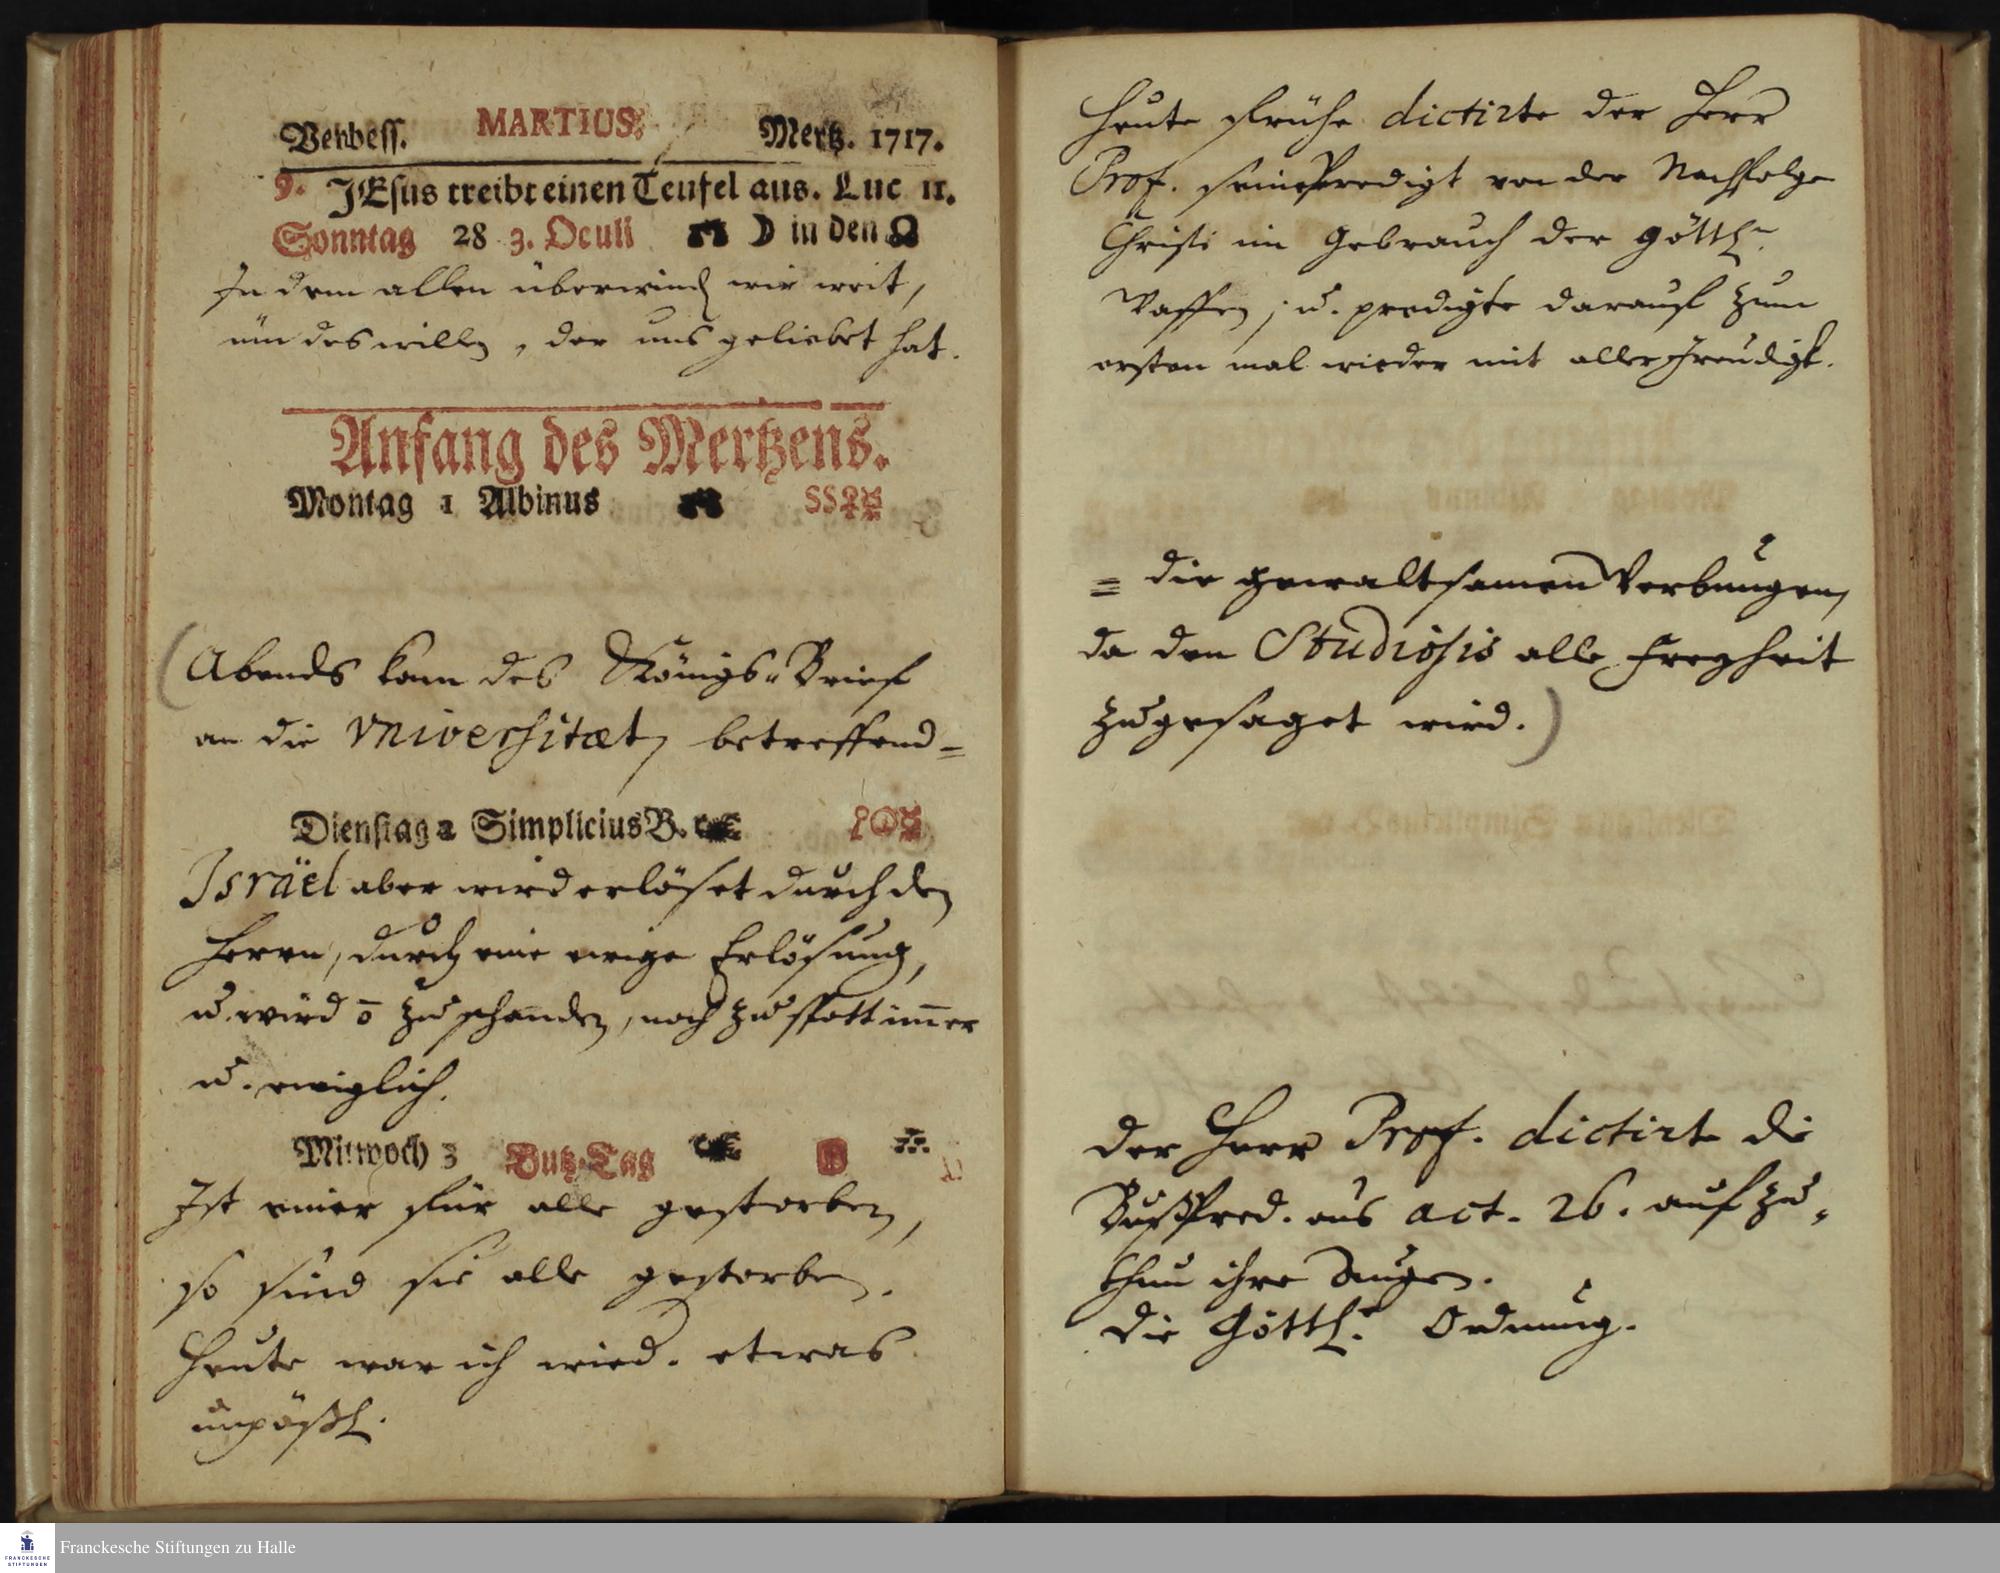 Verbess. MARTIUS. Mertz. 1717.
9. JEsus treibt einen Teufel aus. Luc 11.
Sonntag 28 3. Oculi ☽ in den ☊
In dem allen überwind wir weit,
um des willen, der uns geliebet hat.
Anfang des Mertzens.
Montag 1 Albinus
(Abends kam des Königs-Brief
an die Universitæt, betreffend =
Dienstag 2 Simplicius B.
Israël aber wird erlöset durch den
Herrn, durch eine ewige Erlösung,
u. wird ō zu schanden, noch zu spott im̄er
u. ewiglich.
Mittwoch 3 Butz-Tag
Ist einer für alle gestorben,
so sind sie alle gestorben.
Heute war ich wied. etwas
unpäßl.
Heute frühe dictirte der Herr
Prof. seine Predigt von der Nachfolge
Christi im Gebrauch der göttln.
Waffen, u. predigte darauf zum
ersten mal wieder mit aller Freudigk.
= die gewaltsamen Werbungen,
da den Studiosis alle Freyheit
zugesaget wird.)
der Herr Prof. dictirt die
BußPred. aus act. 26. aufzu-
thun ihre Augen.
die Göttl. Ordnung.
Franckesche Stiftungen zu Halle
FRANCKESCHE
STIFTUNGEN